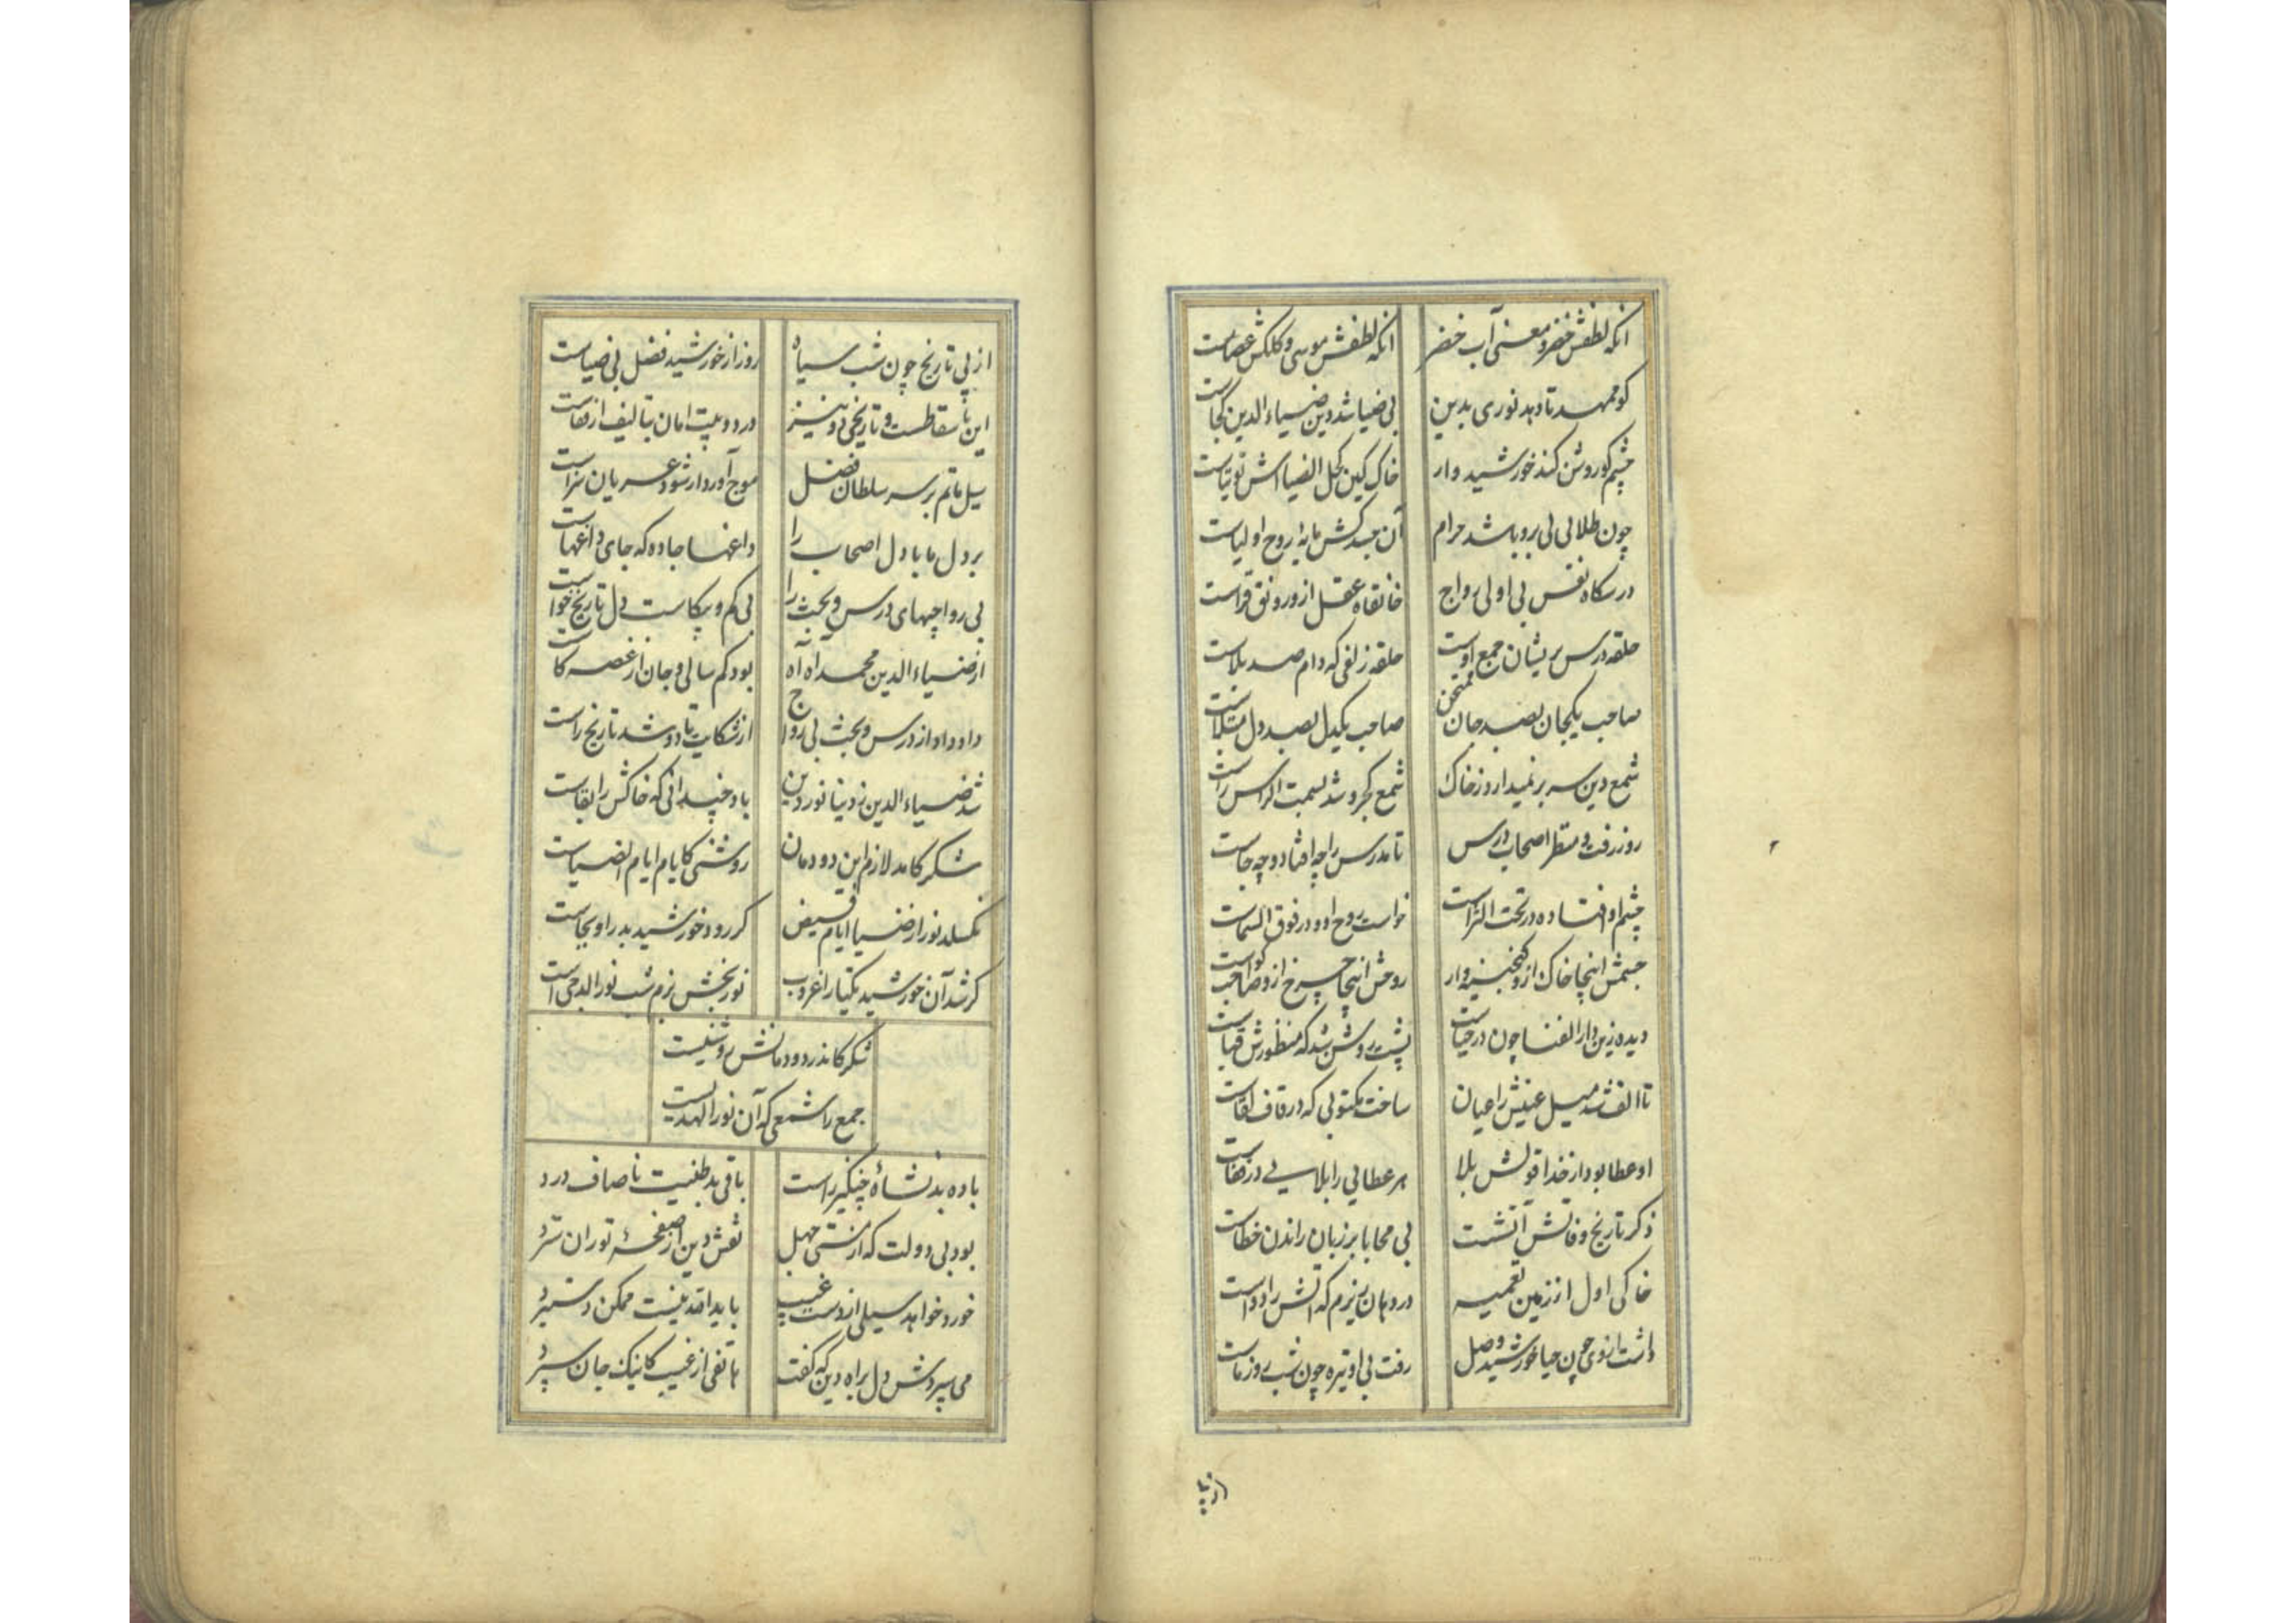 آنکه لطفش خضر و معنی آب خضر آنکه لطفش موسی و کلکش عصاست
کو محمد تا دهد نوری بدین بی ضیا شد دین ضیاء الدین کجاست
چشم کو روشن کند خورشید وار خاک کین کحل الضیا اش توتیاست
چون طلالی لی رو باشد حرام آن جسد کش مایهٔ روح اولیاست
درسکاه نفس بی او بی رواج خانقاه عقل ازو رونق فزاست
حلقه درس پریشان جمع اوست حلقه زلفی که دام صد بلاست
صاحب یکجان بصد جان ممتحن صاحب یکدل بصد دل مبتلاست
شمع دین سر بر نمیدارد ز خاک شمع کجرو شد بسمت الراس راست
روز رفت و منتظر اصحاب درس تا مدرس را چه افتاد و چه جاست
چشم او افتاده در تحت الثراست خواست روح او و در فوق السماست
جسمش اینجا خاک ازو کنجینه وار روحش آنجا چرخ ازو صاحب لواست
دیده زین دار الفنا چون در حیات پشت روشن شد که منظورش قباست
تا الف شد میل عینش را عیان ساخت مکتوبی که در قاف لقاست
او عطا بود از خدا قولش بلا هر عطایی را بلایی در قفاست
ذکر تاریخ وفاتش آتشست بی محابا بر زبان راندن خطاست
خاکی اول از زمین تعمیه در دهان ریزم که آتش را دواست
داشت ازوی چون حیا خورشید وصل رفت بی او تیره چون شب روز ماست
از پی
از پی تاریخ چون شب سیاه روز از خورشید فضل بی ضیاست
این باسقاطست و تاریخی دو نیز در دو بیت امان بتالیف از قفاست
سیل ماتم بر سر سلطان فضل موج آورد ار شود عریان سزاست
بر دل ما با دل اصحاب را داغها جا ده که جای داغهاست
بی رواجیهای درس و بحث را بی کم و بیکاست دل تاریخ خواست
از ضیاء الدین محمد آه آه بود کم سالی و جان از غصه کاست
داد داد از درس و بحث بی رواج از شکایت تا دو شد تاریخ راست
شد ضیاء الدین ز دنیا نور دین باد چندانی که خاکش را بقاست
شکر کامد لازم این دودمان روشنی کایام ایام الضیاست
نکسلد نور از ضیا ایام فیض کر رود خورشید بدر او بجاست
کر شد آن خورشید یکتا را غروب نور بخش بزم شب نور الدجی است
شکر کاندر دودمانش روشنیست
جمع را شمعی که آن نور الهدیست
باده بد نشاهٔ چنکیز راست باقی بد طینت ناصاف درد
بود بی دولت که از مستی جهل نقش دین از صفحهٔ توران سترد
خورد خواهد سیلی از دست غیب باید اقد نیست ممکن دستبرد
می سپردش دل براه دین که کفت هاتفی از غیب کاینک جان سپرد